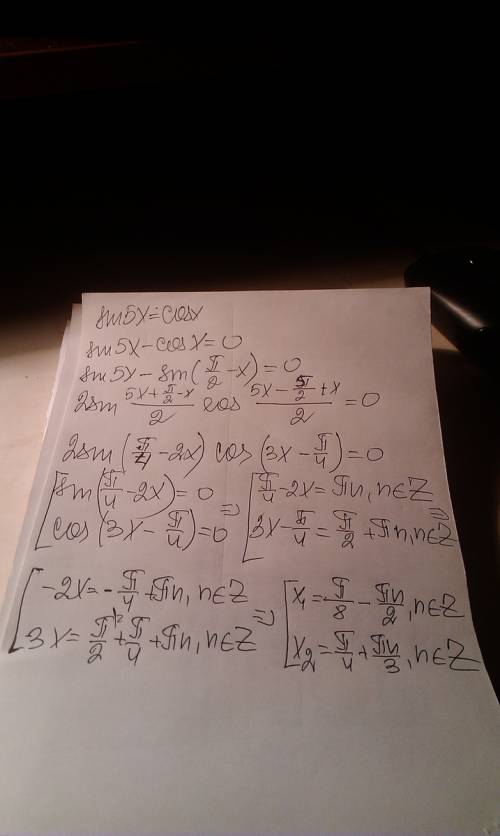 sin5x=cosx
sin5x-cosx=0
sin5x-sin(π/2-x)=0
2sin (5x+π/2-x)/2 cos (5x-π/2+x)/2 =0
2sin(π/4-2x) cos(3x-π/4)=0
[sin(π/4-2x)=0 => [π/4-2x=πn, n∈Z
cos(3x-π/4)=0 3x-π/4=π/2+πn, n∈Z =>
[-2x=-π/4+πn, n∈Z => [x₁=π/8-πn/2, n∈Z
3x=π/2+π/4+πn, n∈Z x₂=π/4+πn/3, n∈Z